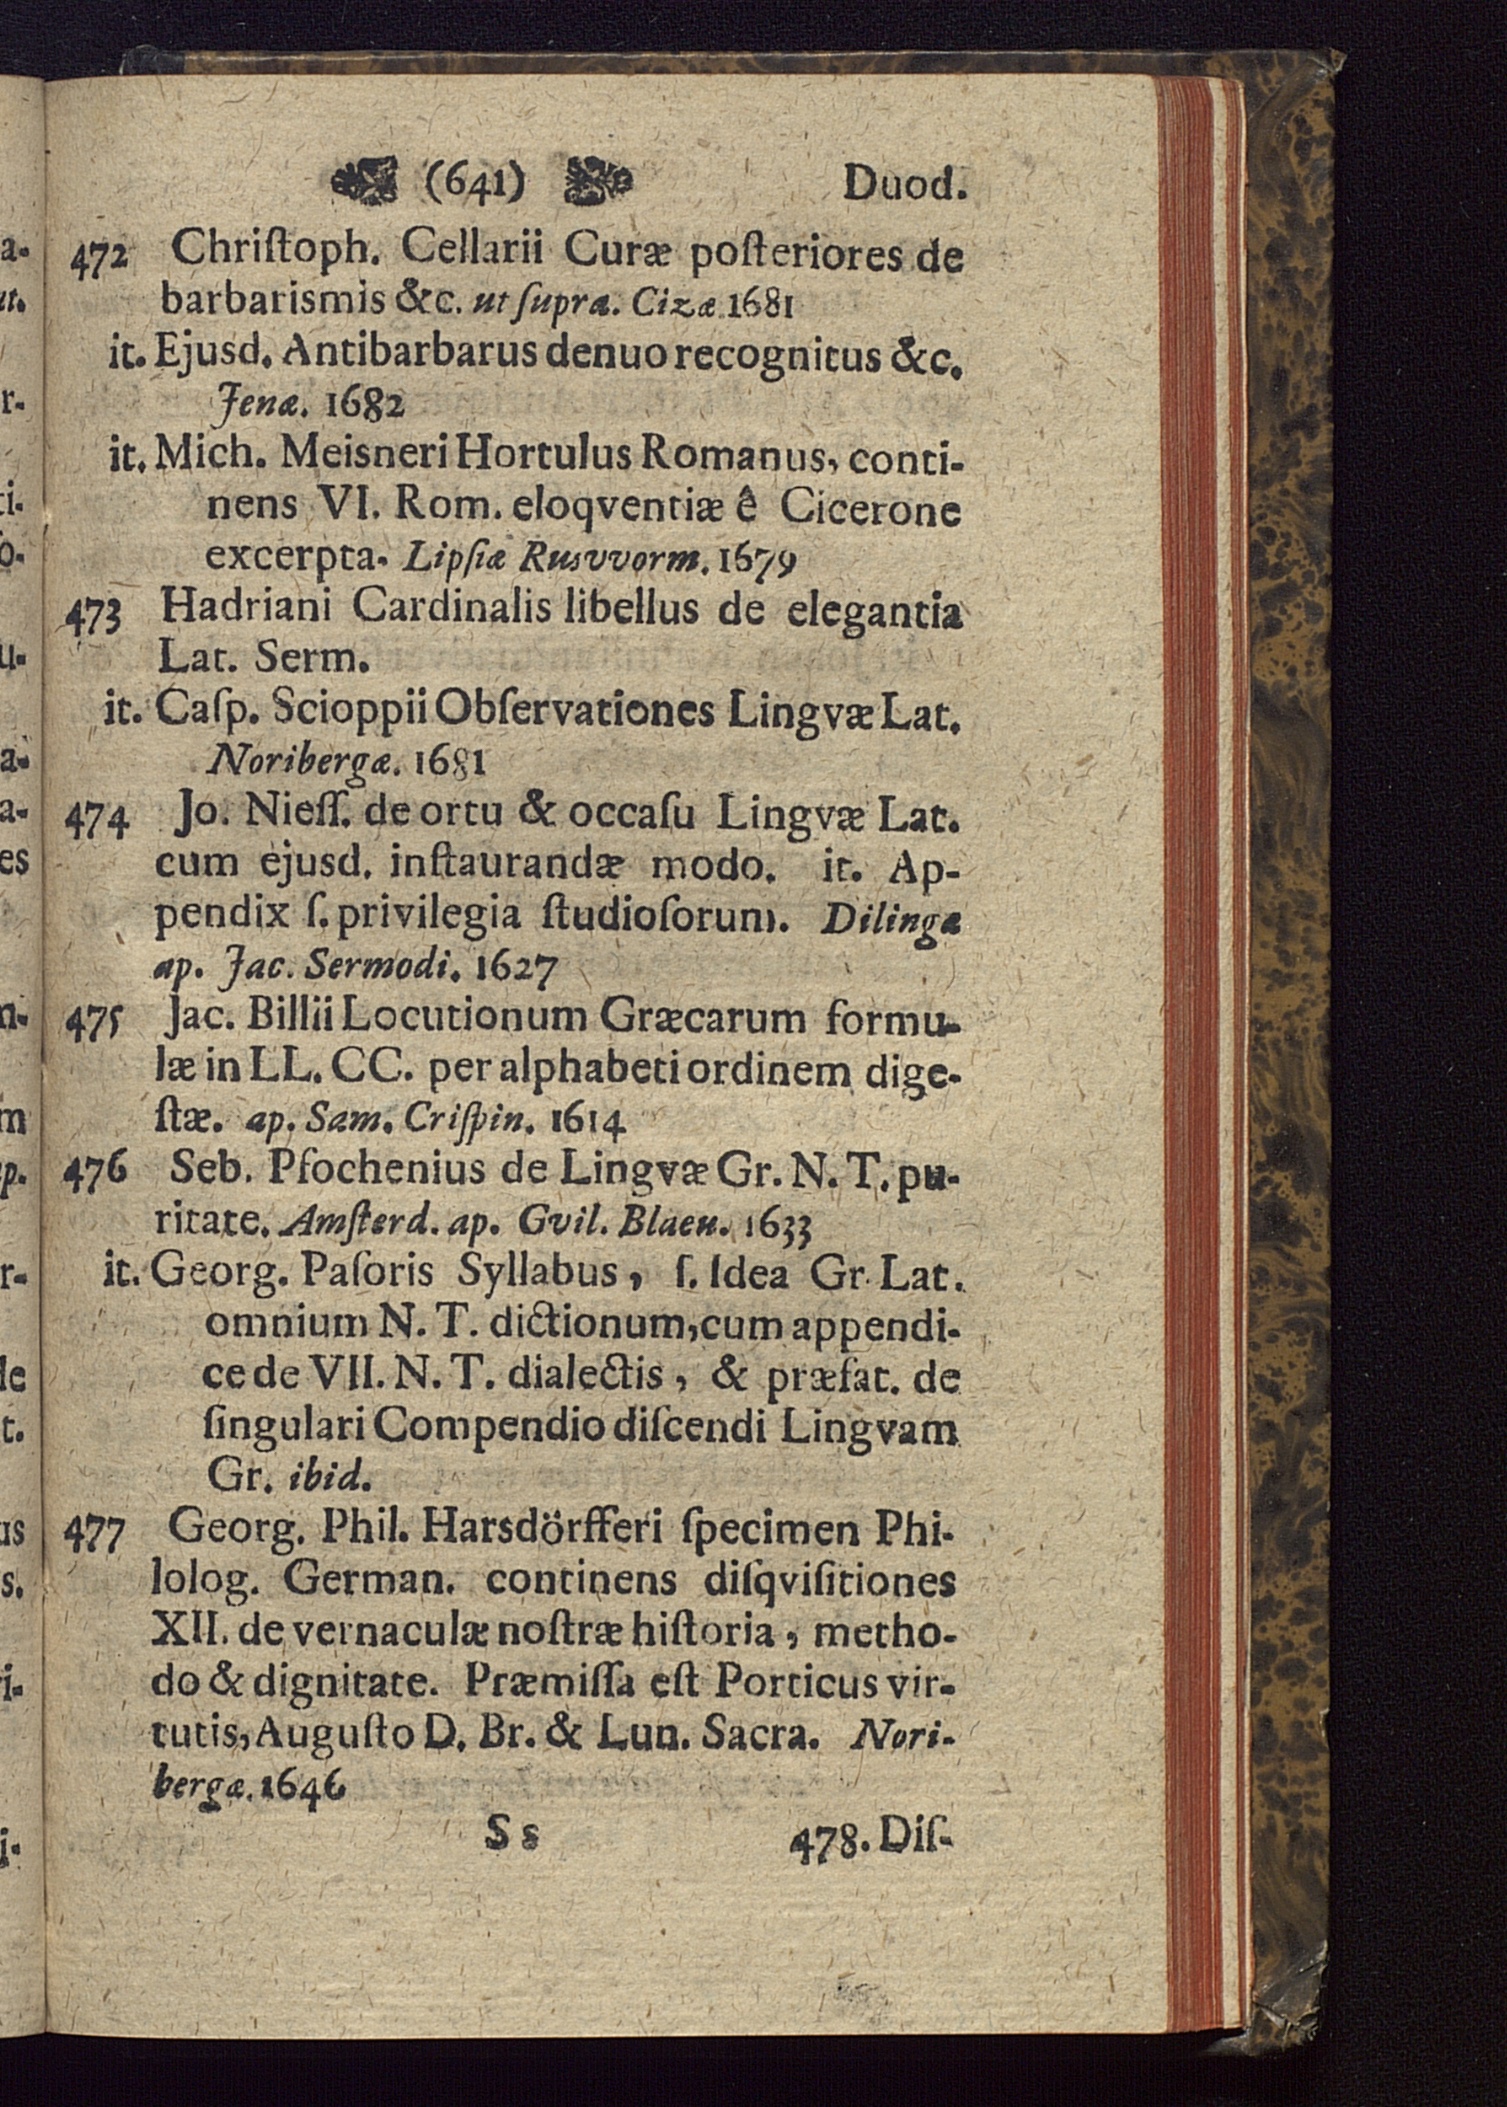 (641) Duod.
472 Chriſtoph. Cellarii Curæ poſteriores de
barbarismis &c. ut ſupra. Cizæ 1681
it. Ejusd. Antibarbarus denuo recognitus &c.
Jenæ. 1682
it. Mich. Meisneri Hortulus Romanus, conti-
nens VI. Rom. eloqventiæ ê Cicerone
excerpta. Lipſiæ Rusvvorm. 1679
473 Hadriani Cardinalis libellus de elegantia
Lat. Serm.
it. Caſp. Scioppii Obſervationes Lingvæ Lat.
Noribergæ. 1681
474 Jo. Nieſſ. de ortu & occaſu Lingvæ Lat.
cum ejusd. inſtaurandæ modo. it. Ap-
pendix ſ. privilegia ſtudioſorum. Dilingæ
ap. Jac. Sermodi. 1627
475 Jac. Billii Locutionum Græcarum formu-
læ in LL. CC. per alphabeti ordinem dige-
ſtæ. ap. Sam. Criſpin. 1614
476 Seb. Pfochenius de Lingvæ Gr. N. T. pu-
ritate. Amſterd. ap. Gvil. Blaeu. 1633
it. Georg. Paſoris Syllabus, ſ. Idea Gr. Lat.
omnium N. T. dictionum, cum appendi-
ce de VII. N. T. dialectis, & præfat. de
ſingulari Compendio diſcendi Lingvam
Gr. ibid.
477 Georg. Phil. Harsdörfferi ſpecimen Phi-
lolog. German. continens diſqviſitiones
XII. de vernaculæ noſtræ hiſtoria, metho-
do & dignitate. Præmiſſa eſt Porticus vir-
tutis, Auguſto D. Br. & Lun. Sacra. Nori-
bergæ. 1646
S s 478. Diſ-